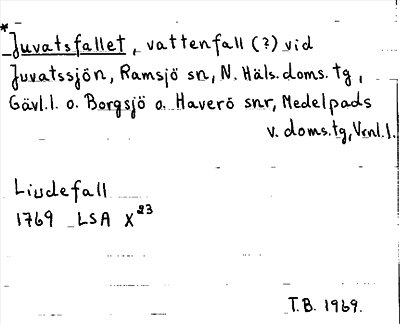 * Juvatsfallet, vattenfall (?) vid
Juvatssjön, Ramsjö sn, N. Häls. doms. tg,
Gävl. l. o. Borgsjö o. Haverö snr, Medelpads
v. doms. tg, Vrnl. l.
Liudefall
1769 LSA X23
T.B. 1969.